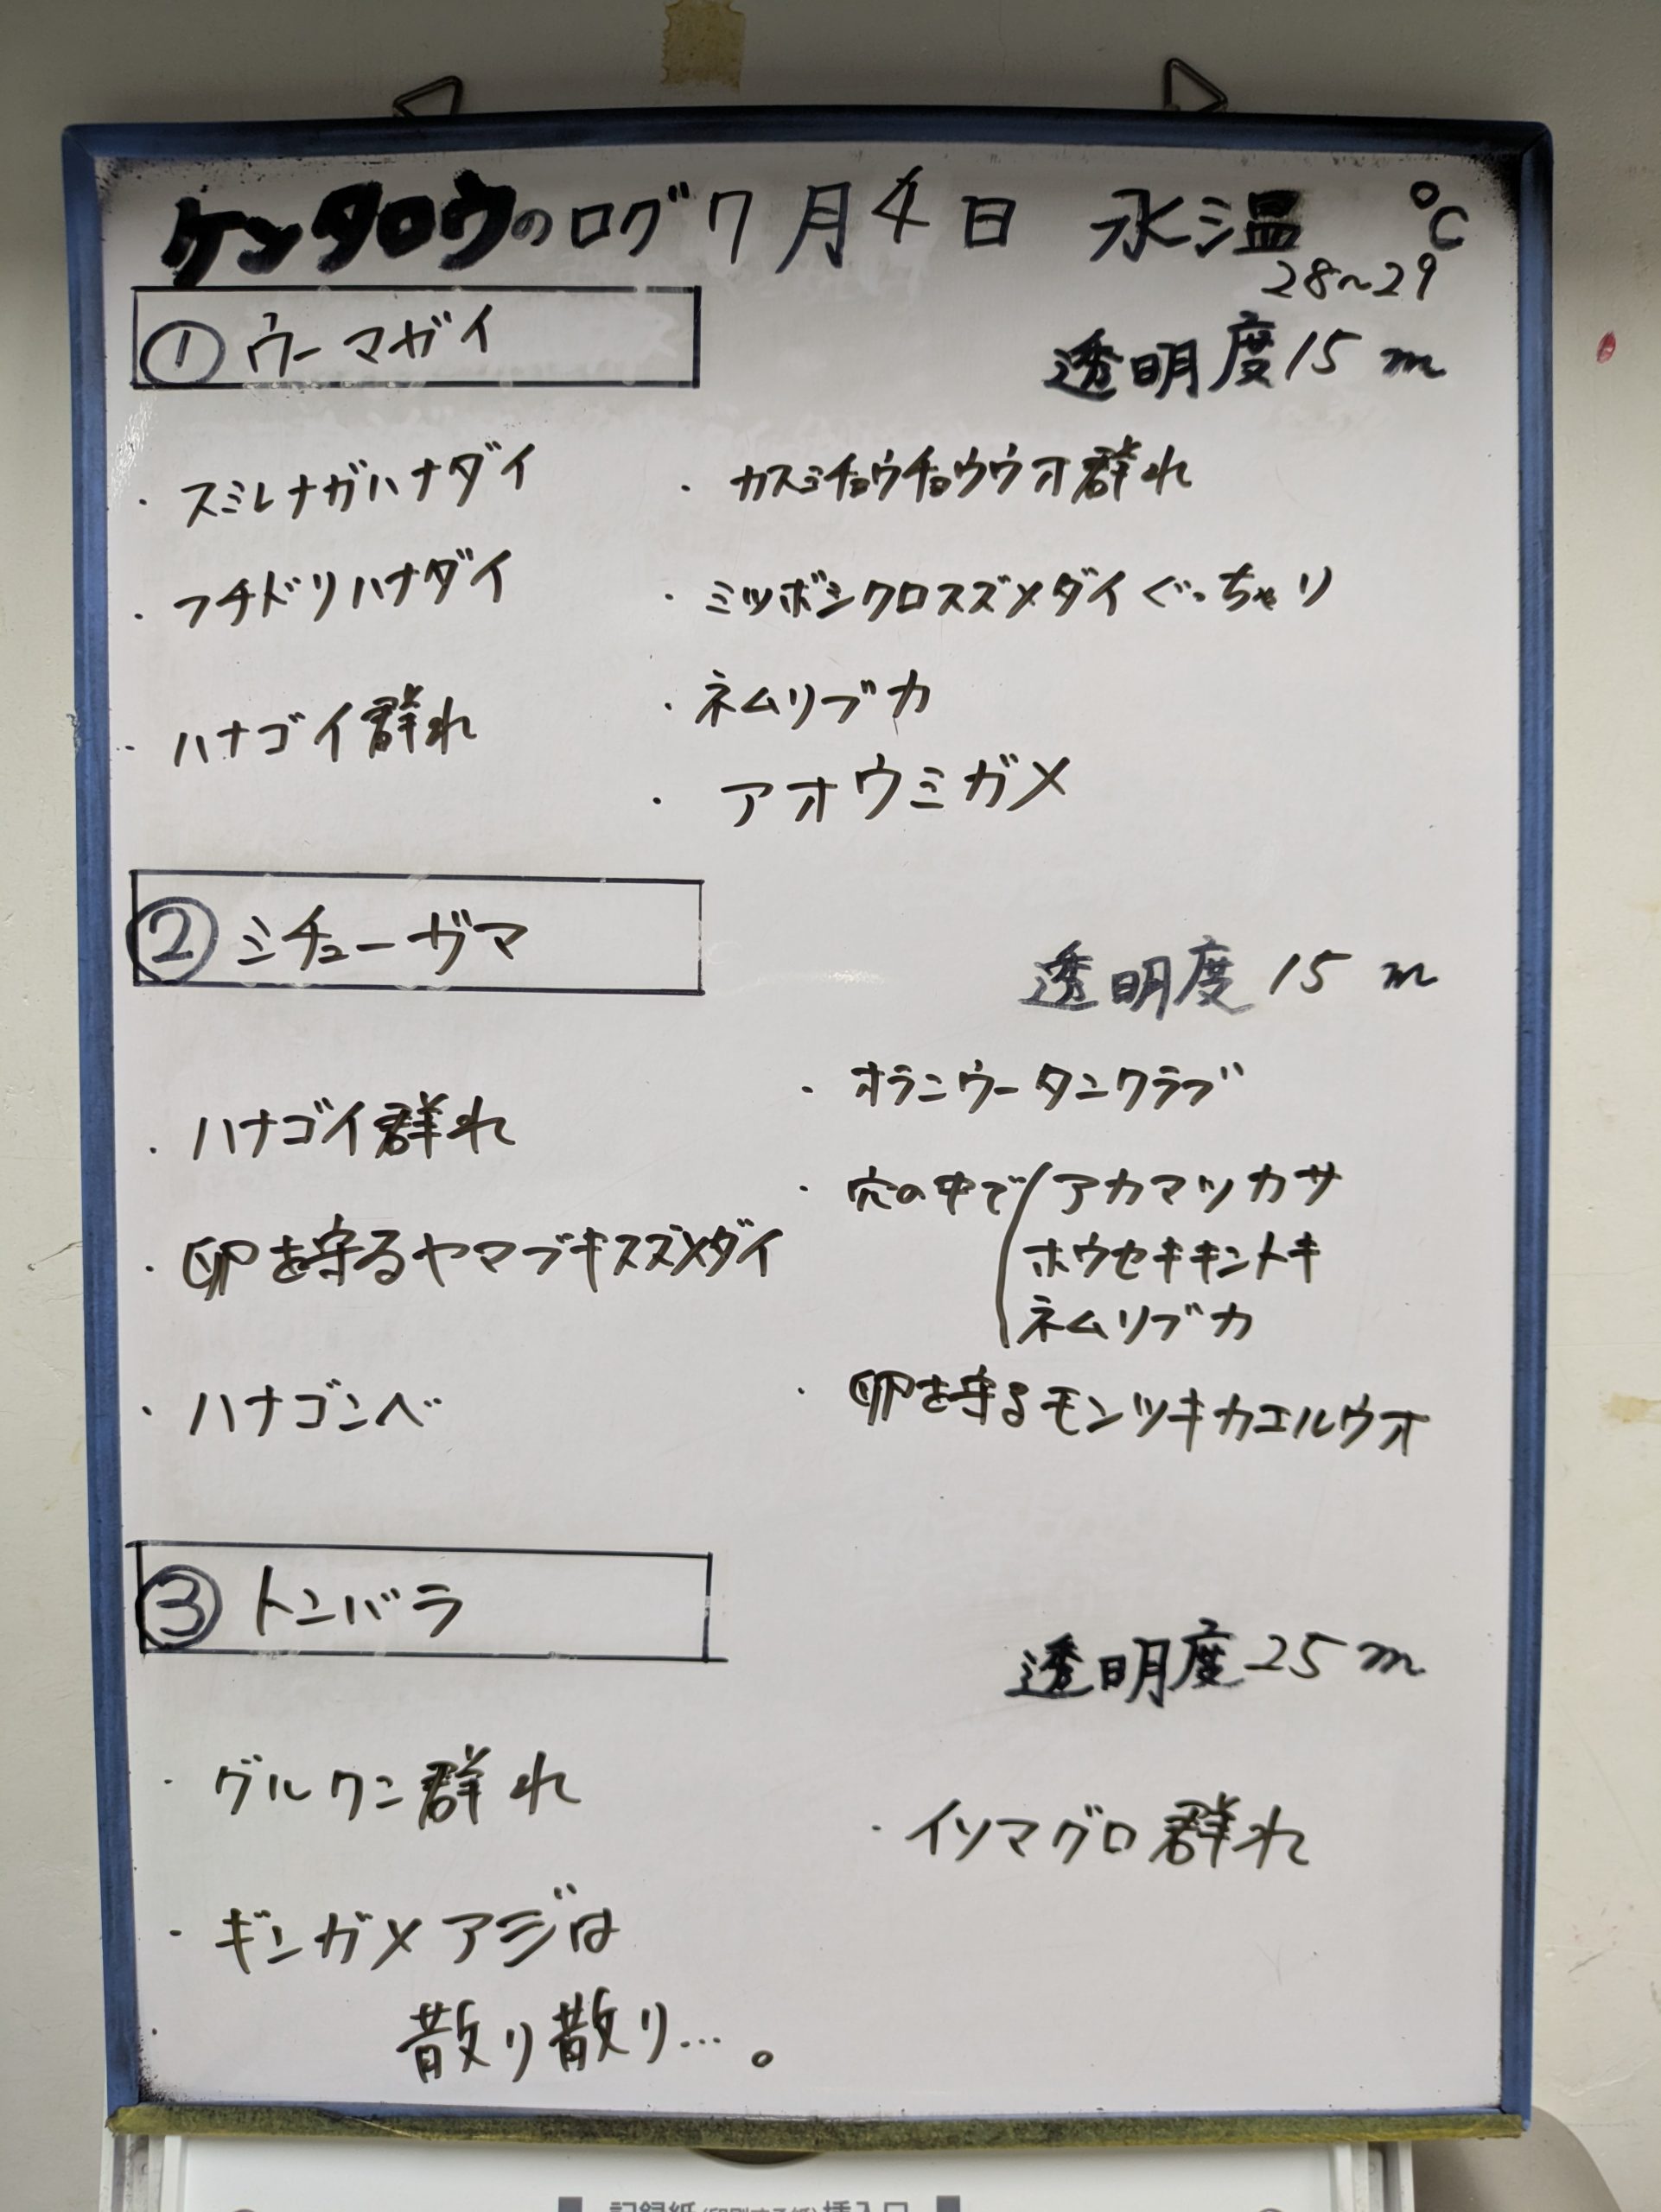 ケンタロウのログ 7月4日 水温 ℃
28~29
① ウーマガイ
透明度15m
・スミレナガハナダイ
・フチドリハナダイ
・ハナゴイ群れ
・カスミチョウチョウウオ群れ
・ミツボシクロスズメダイぐっちゃり
・ネムリブカ
・アオウミガメ
② ミチューガマ
透明度 15m
・ハナゴイ群れ
・卵を守るヤマブキスズメダイ
・ハナゴンベ
・オランウータンクラブ
・穴の中で(アカマツカサ
ホウセキキントキ
ネムリブカ
・卵を守るモンツキカエルウオ
③ トンバラ
透明度25m
・グルクン群れ
・ギンガメアジは
散り散り…。
・イソマグロ群れ